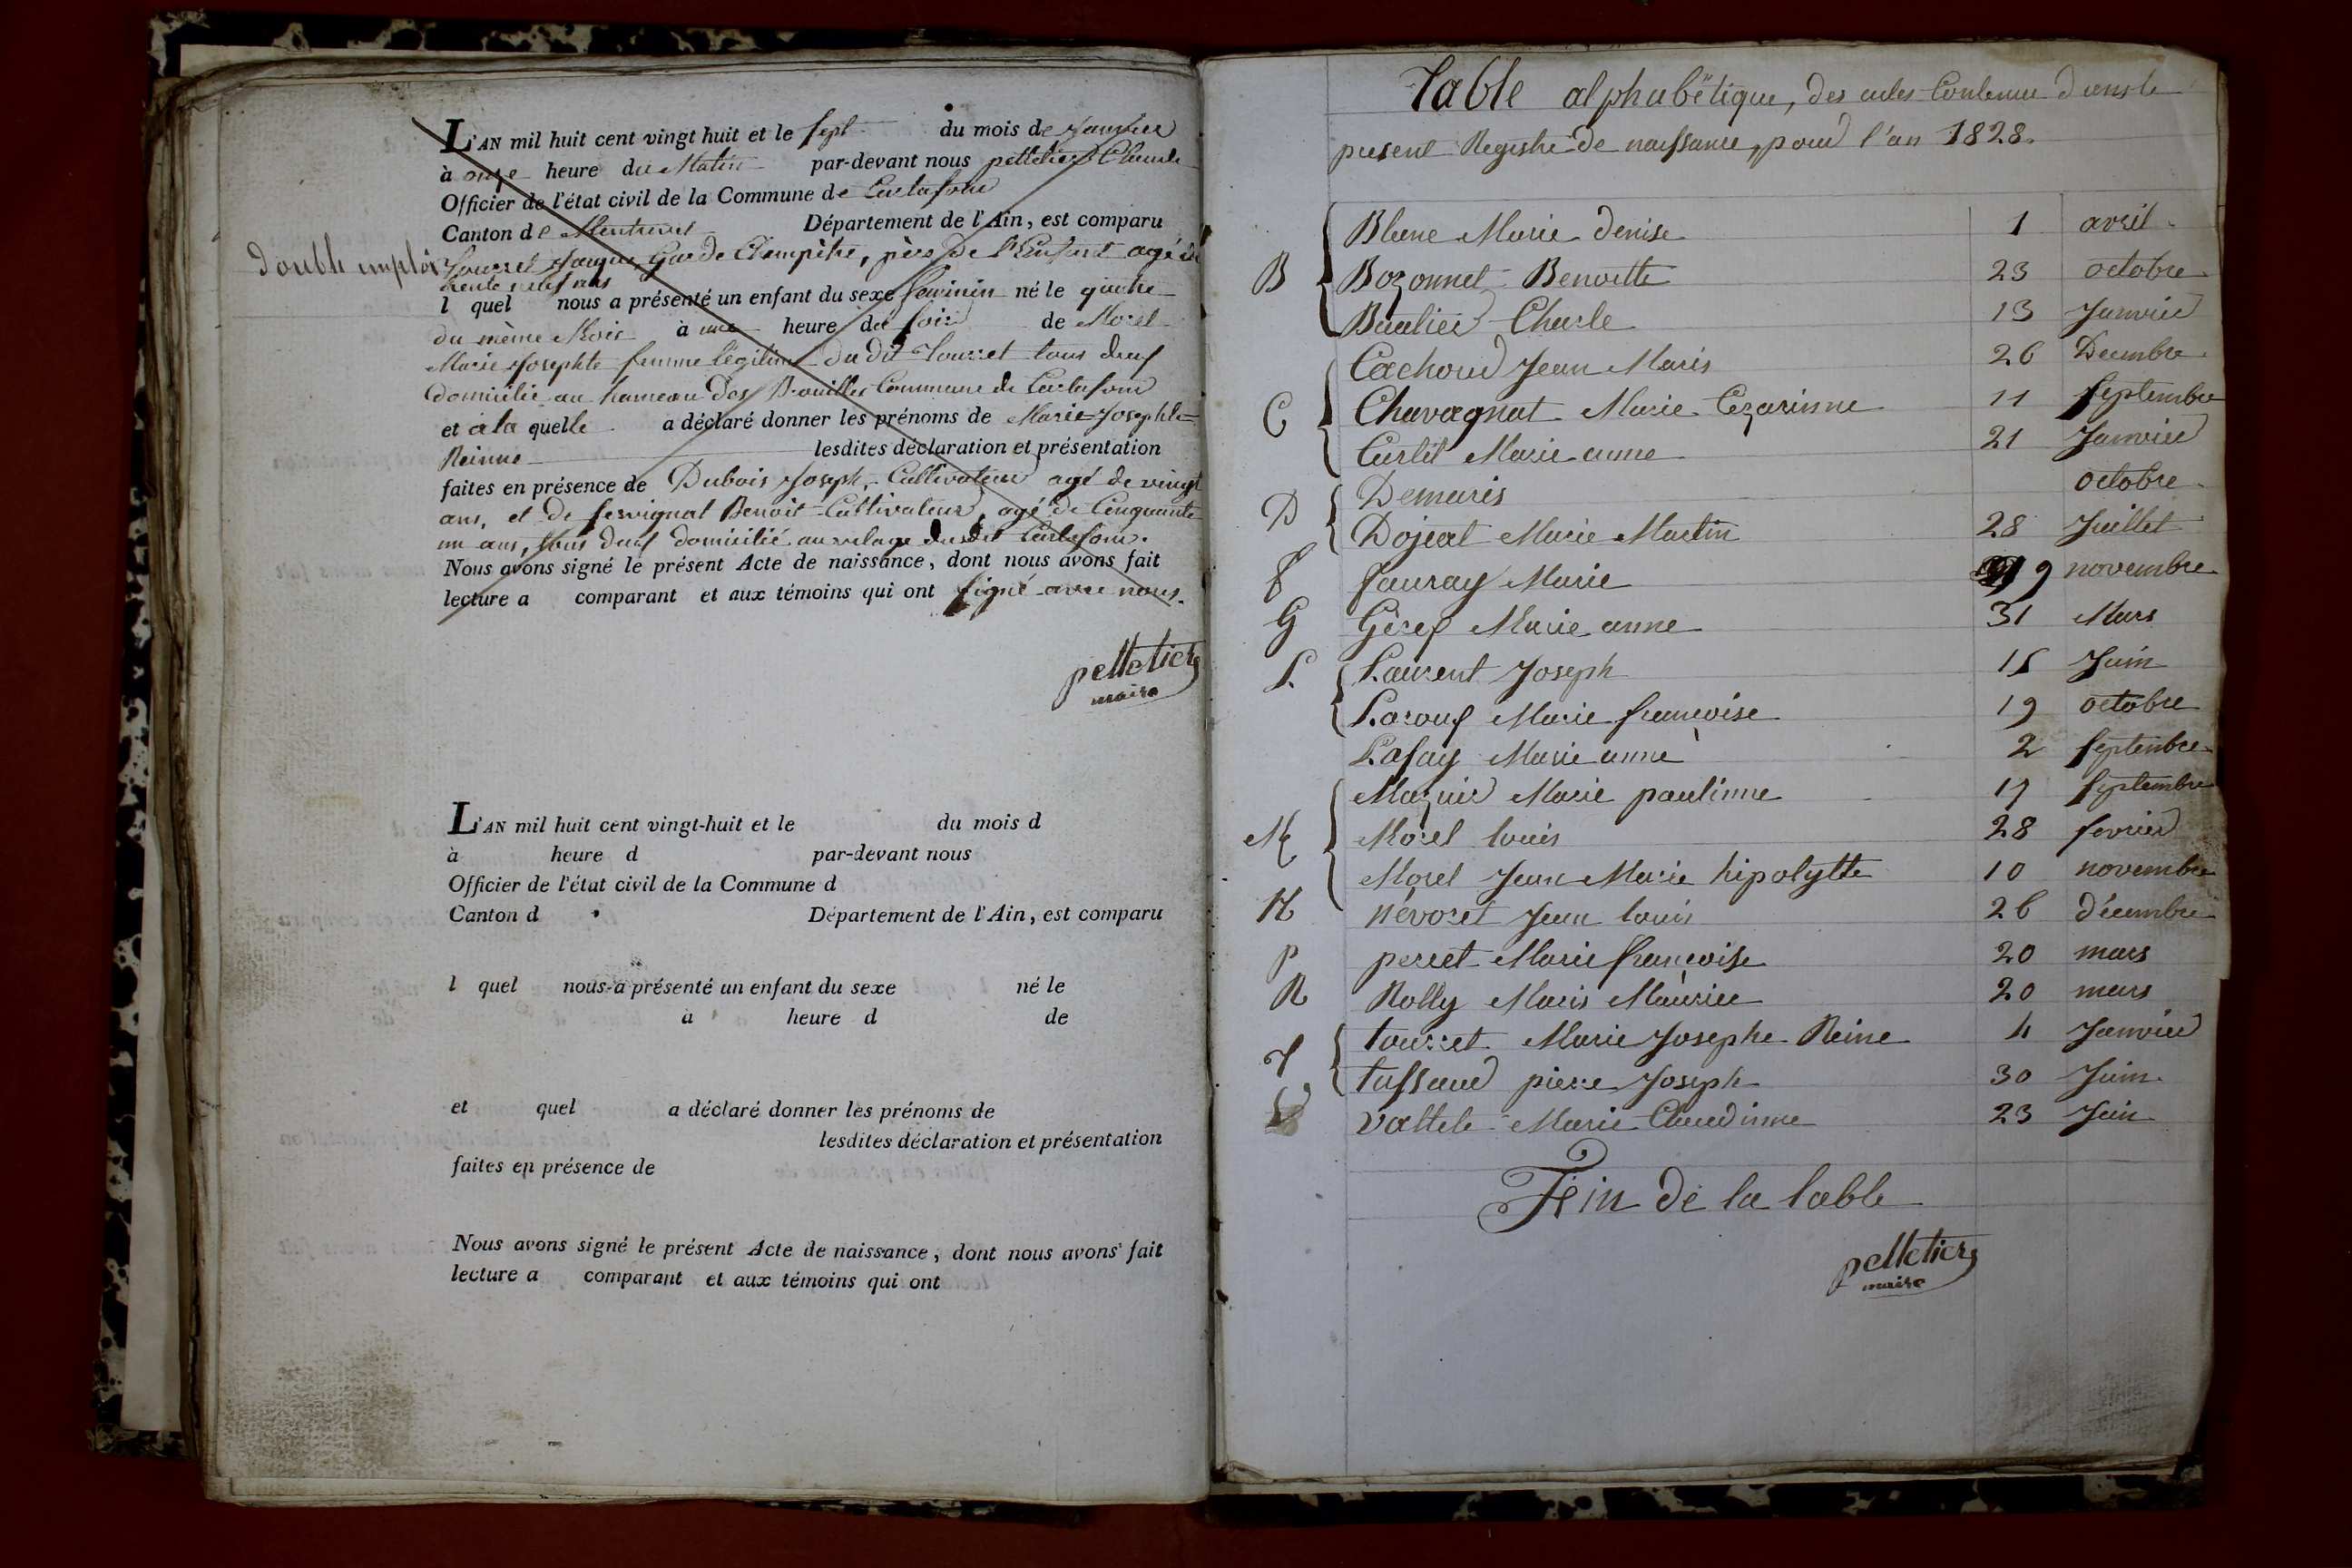 L'AN mil huit cent vingt huit et le sept du mois de Janvier
à onze heure du Matin par-devant nous pelletier Charle
Officier de l'état civil de la Commune de Curtafond
Canton de Montrevel Département de l'Ain, est comparu
double emploi
Tourret Jaque, Garde Champêtre, père De l'Enfant agé de
trente neuf ans
l quel nous a présenté un enfant du sexe feminin né le quatre
du même Mois à une heure du soir de Morel
Marie Josephte femme légitime du dit Tourret tous deux
domicilié au hameau Des Brouilles Commune de Curtafond
et à la quelle a déclaré donner les prénoms de Marie Josephte
Reinne lesdites déclaration et présentation
faites en présence de Dubois Joseph, Cultivateur agé de vingt
ans, et de fervignat Benoit Cultivateur, agé de Cinquante
un ans, tous deux domicilié au vilage dudit Curtafond.
Nous avons signé le présent Acte de naissance, dont nous avons fait
lecture a comparant et aux témoins qui ont signé avec nous.
pelletier
maire
L'AN mil huit cent vingt-huit et le du mois d
à heure d par-devant nous
Officier de l'état civil de la Commune d
Canton d Département de l'Ain, est comparu
l quel nous a présenté un enfant du sexe né le
à heure d de
et quel a déclaré donner les prénoms de
lesdites déclaration et présentation
faites en présence de
Nous avons signé le présent Acte de naissance, dont nous avons fait
lecture a comparant et aux témoins qui ont
Table alphabétique, des actes Contenu dans le
present Registre de naissance, pour l'an 1828.
Blanc Marie Denise 1 avril
B Bozonnet Benoitte 23 octobre
Baulier Charle 13 Janvier
Cachoud Jean Maris 26 Decembre
C Chavagnat Marie Cezarinne 11 septembre
Curtil Marie anne 21 Janvier
D Demaris octobre
Dojeat Marie Martin 28 Juillet
f fauray Marie 9 novembre
G Gérex Marie anne 31 Mars
L Laurent Joseph 15 Juin
Laroux Marie françoise 19 octobre
Lafay Marie anne 2 septembre
Mazuir Marie paulinne 17 septembre
M Morel louis 28 fevrier
Morel Jean Marie hipolytte 10 novembre
N névoret Jean louis 26 décembre
P perret Marie françoise 20 mars
R Rolly Maris Maurice 20 mars
T tourret Marie Josephe Reine 4 Janvier
tussaud pierre Joseph 30 Juin
V vattele Marie Claudinne 23 Juin
Fin de la table
pelletier
maire